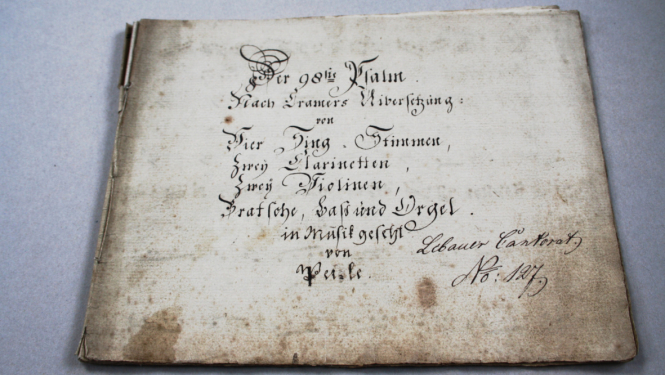 Der 98ste Psalm.
Nach Cramers Uibersetzung:
von
Vier Sing-Stimmen,
Zweÿ Clarinetten,
Zweÿ Violinen,
Bratsche, Bass und Orgel.
in Musik gesetzt
von
Lebauer Cantorat,
No: 127,